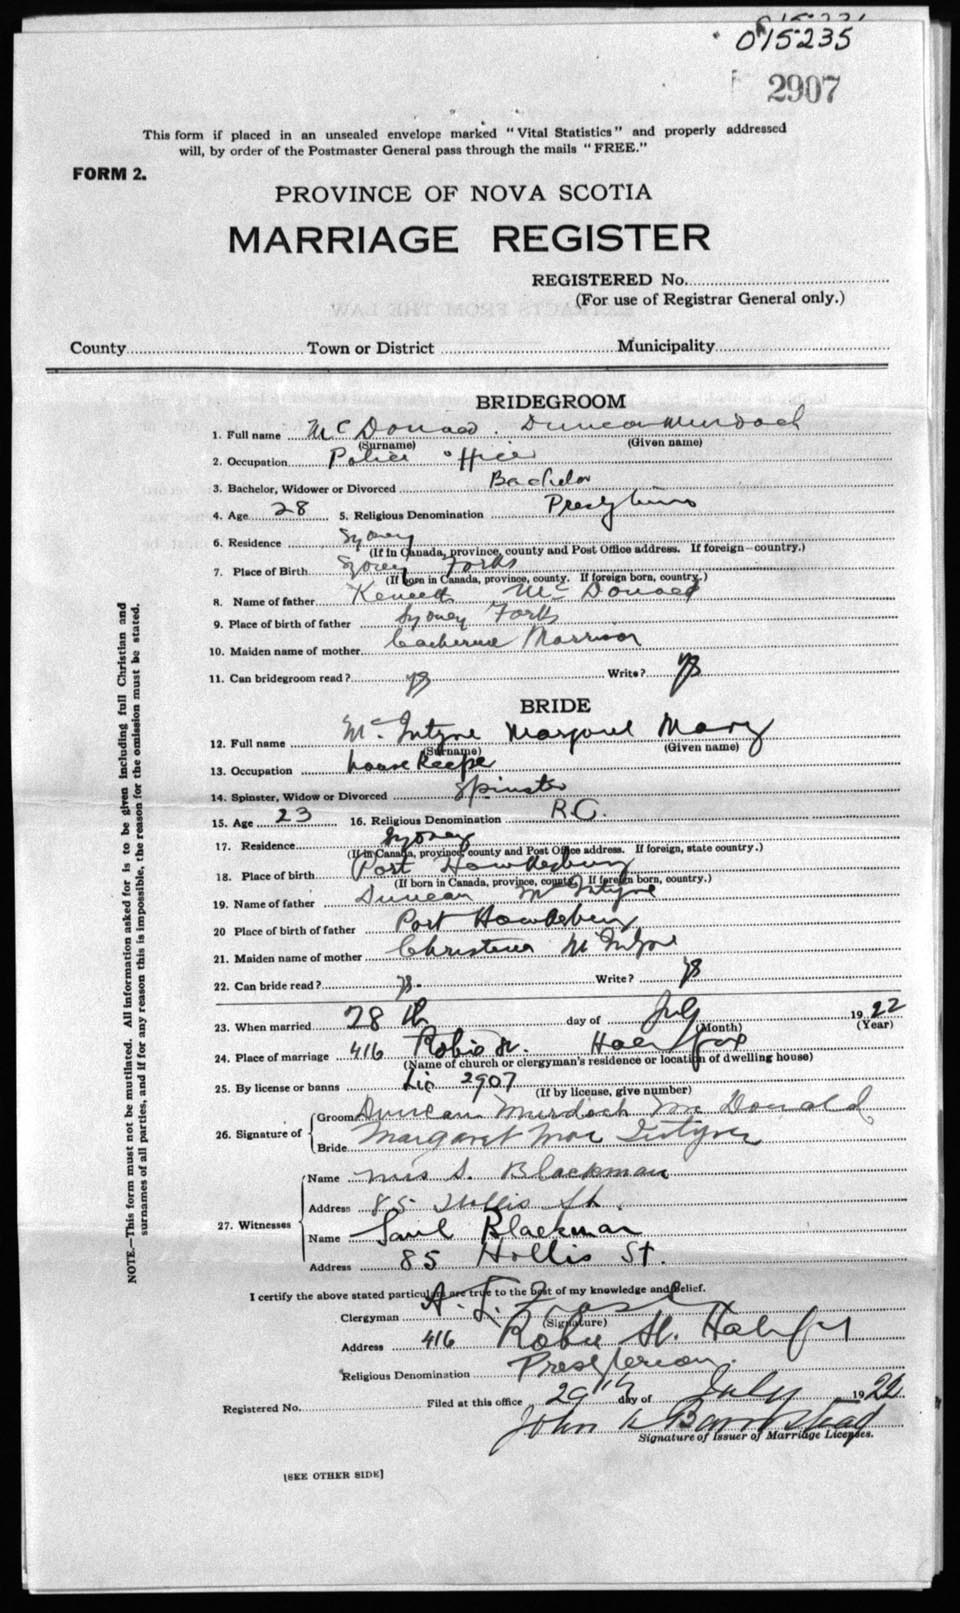 015235
2907
This form if placed in an unsealed envelope marked "Vital Statistics" and properly addressed
will, by order of the Postmaster General pass through the mails "FREE."
FORM 2.
PROVINCE OF NOVA SCOTIA
MARRIAGE REGISTER
REGISTERED No.
(For use of Registrar General only.)
County Town or District Municipality
BRIDEGROOM
1. Full name McDonald Duncan Murdoch
(Surname) (Given name)
2. Occupation Police Officer
3. Bachelor, Widower or Divorced Bachelor
4. Age 28 5. Religious Denomination
6. Residence Sydney
(If in Canada, province, county and Post Office address. If foreign—country.)
7. Place of Birth Sydney Forks
(If born in Canada, province, county. If foreign born, country.)
8. Name of father Kenneth McDonald
9. Place of birth of father Sydney Forks
10. Maiden name of mother Catherine Morrison
11. Can bridegroom read? yes Write? yes
BRIDE
12. Full name McIntyre Margaret Mary
(Surname) (Given name)
13. Occupation housekeeper
14. Spinster, Widow or Divorced Spinster
15. Age 23 16. Religious Denomination R.C.
17. Residence Sydney
(If in Canada, province, county and Post Office address. If foreign, state country.)
18. Place of birth Port Hawkesbury
(If born in Canada, province, county. If foreign born, country.)
19. Name of father Duncan McIntyre
20 Place of birth of father Port Hawkesbury
21. Maiden name of mother Christena McIntyre
22. Can bride read? yes. Write? yes
23. When married 28th day of July 1922
(Month) (Year)
24. Place of marriage 416 Robie St. Halifax
(Name of church or clergyman's residence or location of dwelling house)
25. By license or banns Lic 2907
(If by license, give number)
26. Signature of
Groom Duncan Murdoch McDonald
Bride Margaret
27. Witnesses
Name Mrs S. Blackman
Address 85 Hollis St.
Name Saul Blackman
Address 85 Hollis St.
I certify the above stated particulars are true to the best of my knowledge and belief.
Clergyman A.
(Signature)
Address 416 Robie St. Halifax
Religious Denomination Presbyterian.
Registered No. Filed at this office 29th day of July 1922
John Barnstead
Signature of Issuer of Marriage Licenses.
[SEE OTHER SIDE]
NOTE.—This form must not be mutilated. All information asked for is to be given including full Christian and
surnames of all parties, and if for any reason this is impossible, the reason for the omission must be stated.